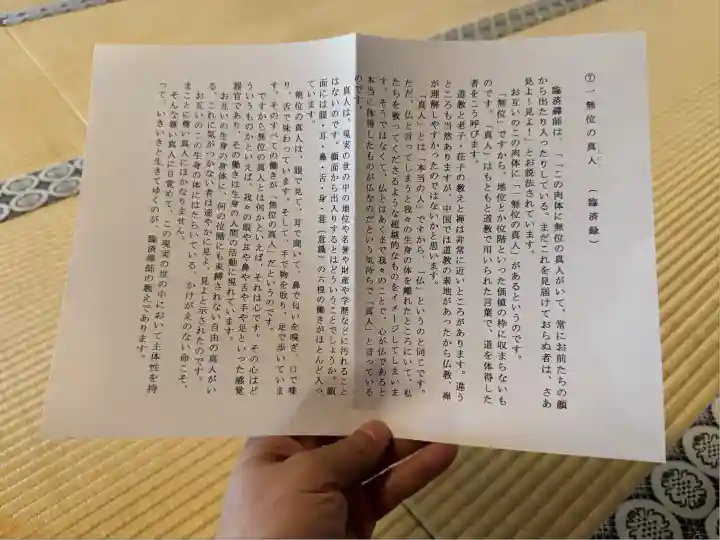 ⑦ 一無位の真人 (臨済録)
臨済禅師は、「「この肉体に無位の真人がいて、常にお前たちの顔
から出たり入ったりしている。まだこれを見届けておらぬ者は、さあ
見よ！見よ！」とお説法されています。
お互いのこの肉体に「一無位の真人」があるというのです。
「無位」ですから、地位とか位階といった価値の枠に収まらないも
のです。「真人」はもともと道教で用いられた言葉で、道を体得した
者をこう呼びます。
道教と老子・荘子の教えと禅は非常に近いところがあります。違う
ところも当然ありますが、中国では道教の素地があったから仏教、禅
が理解しやすかったのではないかと思います。
「真人」とは「本当の人」ですから、「仏」というのと同じです。
ただ、仏と言ってしまうと我々の生身の体を離れたところにいて、私
たちを救ってくださるような超越的なものをイメージしてしまいま
す。そうではなくて、仏とはあくまで我々のことで、心が仏であると
本当に体得したものが仏なのだという気持ちで「真人」と言っている
のです。
真人は、現実の世の中の地位や名誉や財産や学歴などに汚れること
はないのです。顔面から出入りするとはどういうことでしょうか。顔
面には眼・耳・鼻・舌・身・意（意識）の六根の働きがほとんど入っ
ています。
無位の真人は、眼で見て、耳で聞いて、鼻で匂いを嗅ぎ、口で喋
り、舌で味わっています。そして、手で物を取り、足で歩いていま
す。そのすべての働きが「無位の真人」だというのです。
ですから無位の真人とは何かといえば、それは心です。その心はど
ういうものかといえば、我々の眼や耳や鼻や舌や手や足といった感覚
器官であり、その働きは生身の人間の活動に現れています。
お互いの生身の身体に、何の位階にも束縛されない自由の真人がい
る。これに気がつかない者は速やかに見よ、見よと示されたのです。
お互いのこの生身の体にはたらいている、かけがえのない命こそ、
まことに尊い真人にほかなりません。
そんな尊い真人に目覚めて、この現実の世の中において主体性を持
って、いきいきと生きてゆくのが、臨済禅師の教えであります。